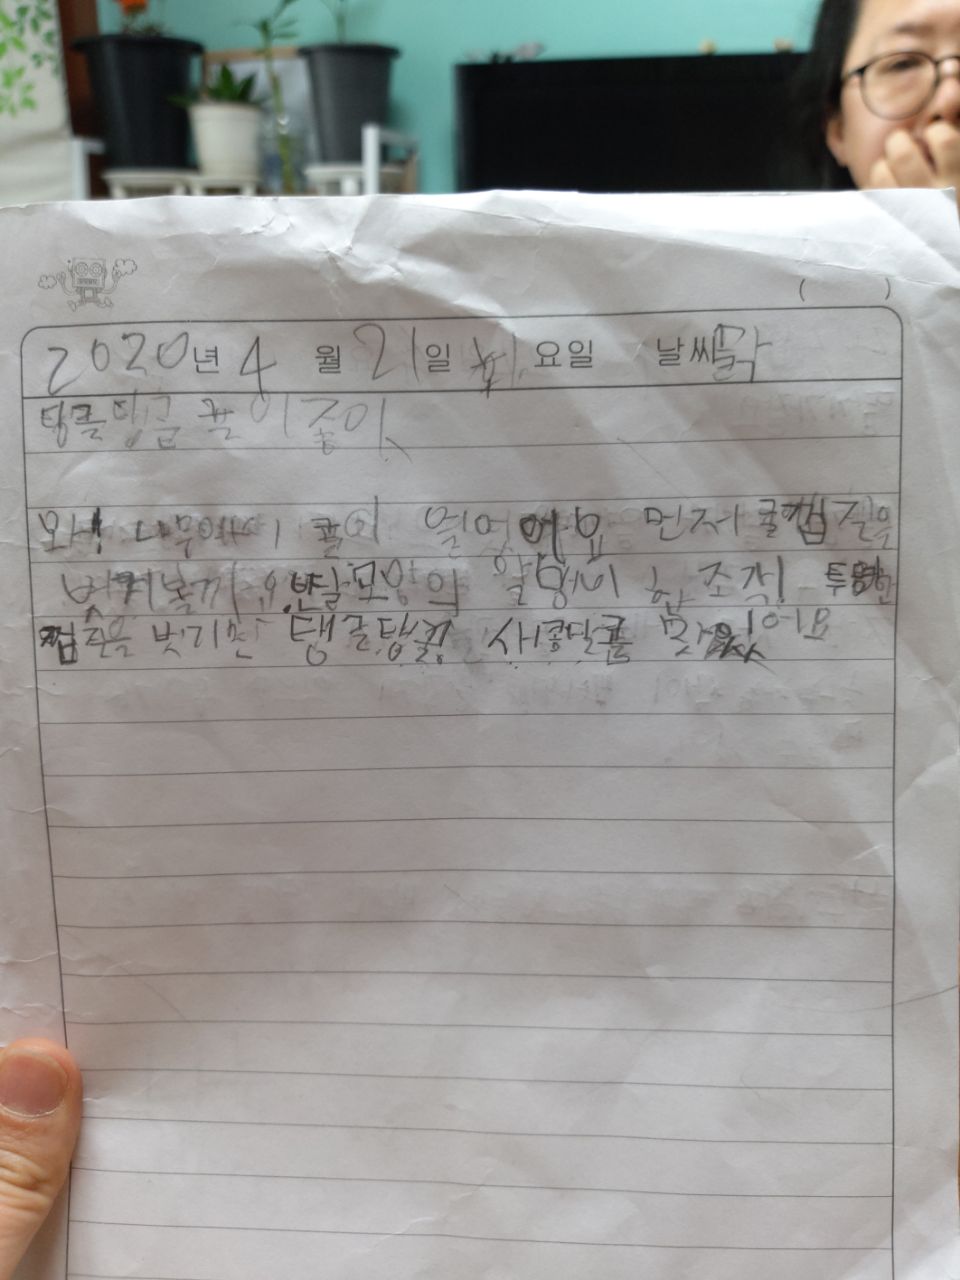 ( )
2020년 4 월 21일 화 요일 날씨
탱글탱글 귤이 좋아
와 나무에서 귤이 열었어요 먼저 귤껍질을
벗겨볼까요 반달모양의 알맹이 한조각 투명한
껍질을 벗기면 탱글탱글 새콤달콤 맛있어요